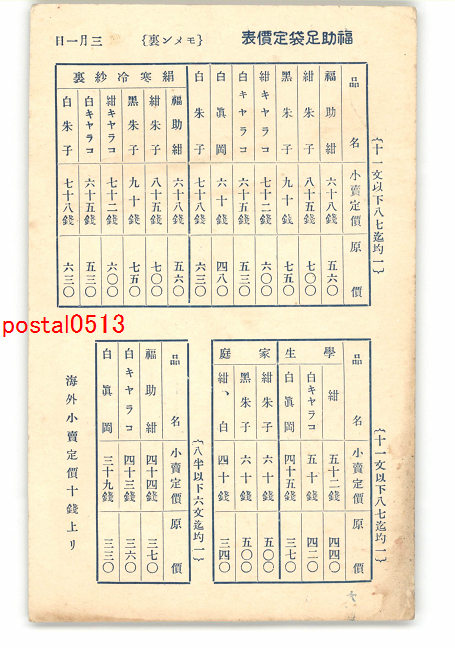 福助足袋定價表 {モメン裏} 三月一日
{十一文以下八七迄均一}
品名 小賣定價 原價
福助紺 六十八錢 五六〇
紺朱子 八十五錢 七〇〇
黑朱子 九十錢 七五〇
紺キャラコ 七十二錢 六〇〇
白キャラコ 六十五錢 五三〇
白眞岡 六十錢 四八〇
白朱子 七十八錢 六三〇
絹寒冷紗裏
福助紺 六十八錢 五六〇
紺朱子 八十五錢 七〇〇
黑朱子 九十錢 七五〇
紺キャラコ 七十二錢 六〇〇
白キャラコ 六十五錢 五三〇
白朱子 七十八錢 六三〇
postal0513
{十一文以下八七迄均一}
品名 小賣定價 原價
學生
紺 五十二錢 四四〇
白キャラコ 五十錢 四二〇
白眞岡 四十五錢 三七〇
家庭
紺朱子 六十錢 五〇〇
黑朱子 六十錢 五〇〇
紺、白 四十錢 三四〇
{八半以下六文迄均一}
品名 小賣定價 原價
福助紺 四十四錢 三七〇
白キャラコ 四十三錢 三六〇
白眞岡 三十九錢 三三〇
海外小賣定價十錢上リ